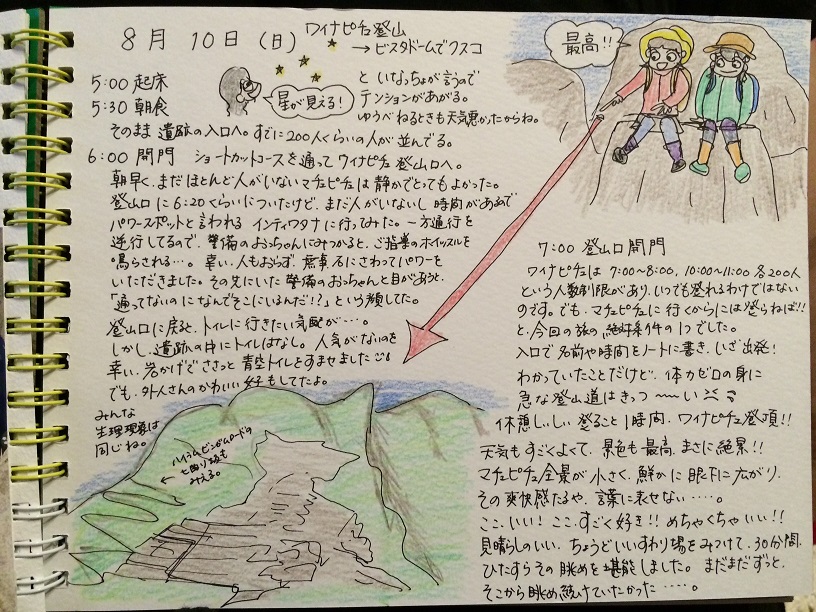 8月10日(日) ワイナピチュ登山
→ビスタドームでクスコ
5:00 起床
5:30 朝食
星が見える!
と いなっちょが言うので
テンションがあがる。
ゆうべねるときも天気悪かったからね。
そのまま 遺跡の入口へ。すでに200人くらいの人が並んでる。
6:00 開門 ショートカットコースを通ってワイナピチュ登山口へ。
朝早く、まだほとんど人がいないマチュピチュは静かでとてもよかった。
登山口に6:20くらいについたけど、まだ人がいないし時間があるので
パワースポットと言われる インティワタナに行ってみた。一方通行を
逆行してるので、警備のおっちゃんにみつかると、ご指摘のホイッスルを
鳴らされる…。幸い、人もおらず、石にさわってパワーを
いただきました。その先にいた警備のおっちゃんと目があうと、
「通ってないのになんでそこにいるんだ!?」という顔してた。
登山口に戻ると、トイレに行きたい気配が…。
しかし、遺跡の中にトイレはなし。人気がないのを
幸い、岩かげでささっと青空トイレをすませました
でも、外人さんのかわいい好もしてたよ。
みんな
生理現象は
同じね。
ハイラムビンガムロードの
七曲り坂も
みえる。
最高!!
7:00 登山口開門
ワイナピチュは 7:00~8:00, 10:00~11:00 各200人
という人数制限があり、いつでも登れるわけではない
のです。でも、マチュピチュに行くからには登らねば!!
と、今回の旅の絶対条件の1つでした。
入口で名前や時間をノートに書き、いざ出発!
わかっていたことだけど、体力ゼロの身に
急な登山道はきっつ~~い
休憩しぃしぃ登ること1時間、ワイナピチュ登頂!!
天気もすごくよくて、景色も最高。まさに絶景!!
マチュピチュ全景が小さく、鮮かに眼下に広がり、
その爽快感たるや、言葉に表せない……。
ここ、いい! ここ、すごく好き!! めちゃくちゃいい!!
見晴らしのいい、ちょうどいいすわり場をみつけて、30分間、
ひたすらその眺めを堪能しました。まだまだずっと、
そこから眺め続けていたかった……。